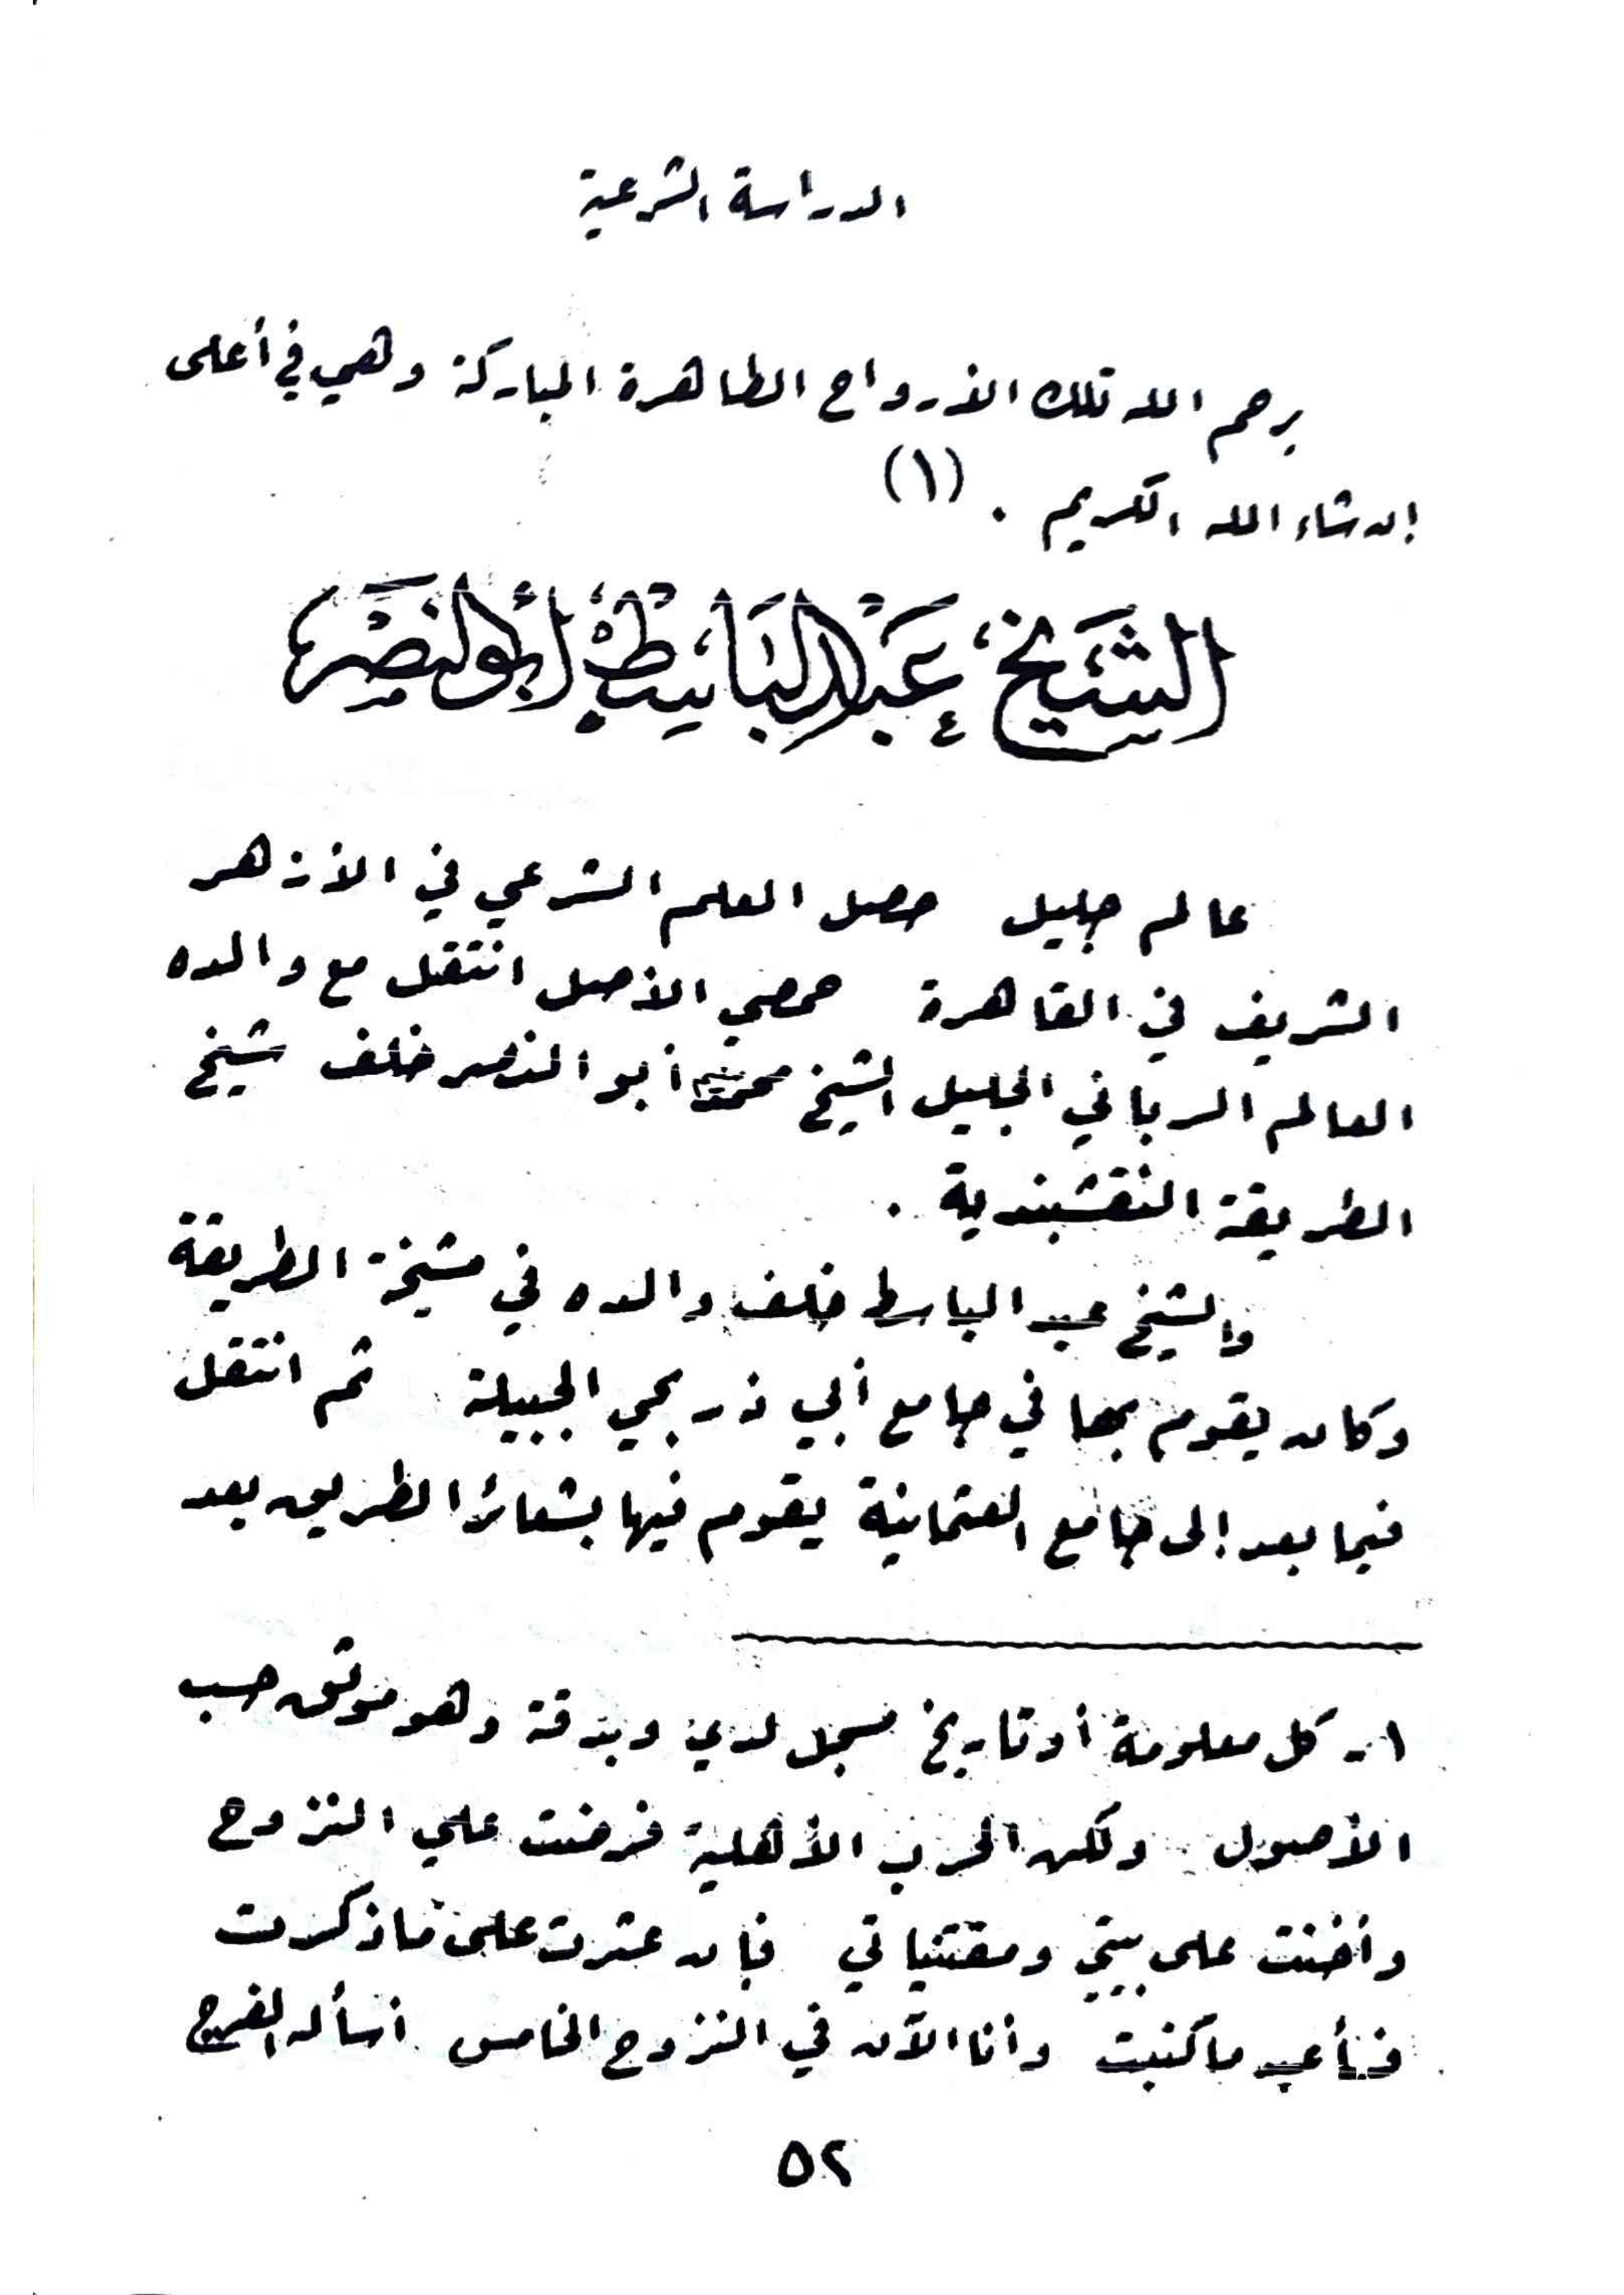 الدراسة الشرعية
يرحم الله تلك الأرواح الطاهرة المباركة وهي في أعلى
إن شاء الله الكريم . (١)
الشَّيْخ عَبْد البَاسِط أبو النَّصْر
عالم جليل حصل العلم الشرعي في الأزهر
الشريف في القاهرة حمصي الأصل انتقل مع والده
العالم الرباني الجليل الشيخ محمد أبو النصر خلف شيخ
الطريقة النقشبندية .
والشيخ عبد الباسط خلف والده في مشيخة الطريقة
وكان يقوم بها في جامع أبي ذر بحي الجبيلة ثم انتقل
فيما بعد إلى جامع العثمانية يقوم فيها بشعائر الطريق بعد
١ - كل معلومة أو تاريخ مسجل لدي وبدقة وهو موثق حسب
الأصول ولكن الحرب الأهلية فرضت علي النزوح
وأخنت على بيتي ومقتنياتي فإن عثرت على ما ذكرت
فسأعيد ما كتبت وأنا الآن في النزوح الخامس أسأله الفرج
٥٢